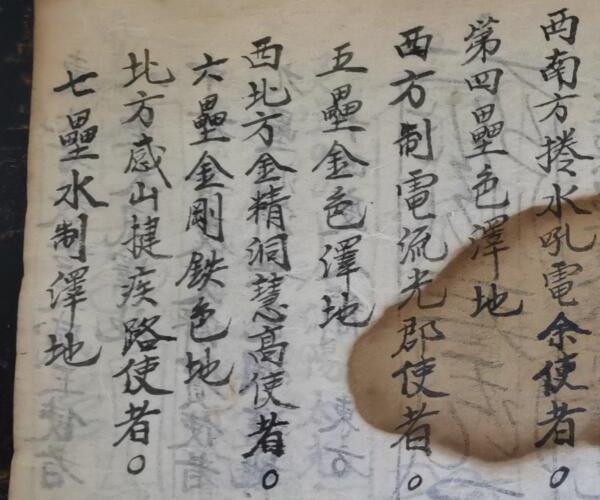 西南方捲水吼電余使者。
第四壘色澤地
西方制電流光郡使者。
五壘金色澤地
西北方金精洞慧高使者。
六壘金剛鉄色地
北方感山捷疾路使者。
七壘水制澤地